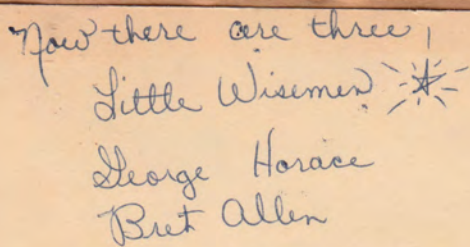 Now there are three
Little Wisemen
George Horace
Bret Allen